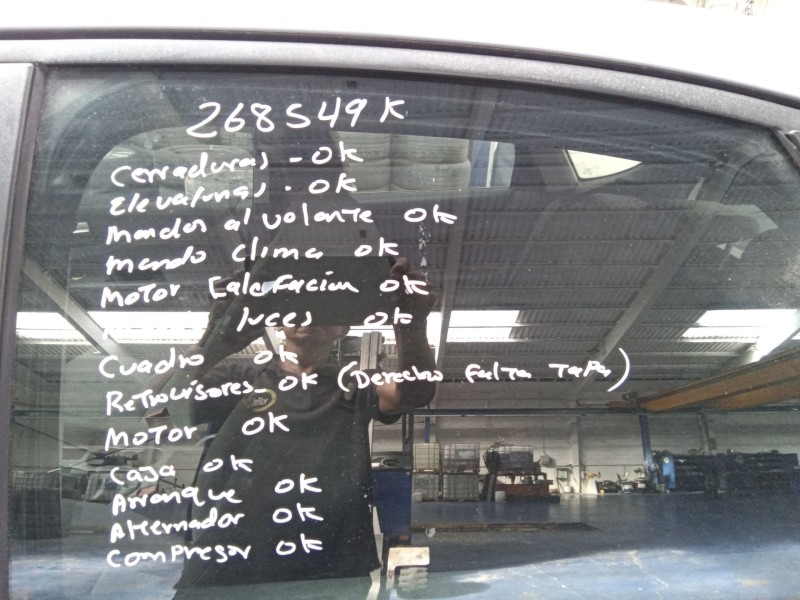 268549 K
Cerraduras - OK
Elevalunas - OK
Mandos al volante OK
Mando clima OK
Motor Calefacion OK
luces OK
Cuadro OK
Retrovisores - OK (Derecho Falta Tapa)
Motor OK
Caja OK
Arranque OK
Alternador OK
Compresor OK